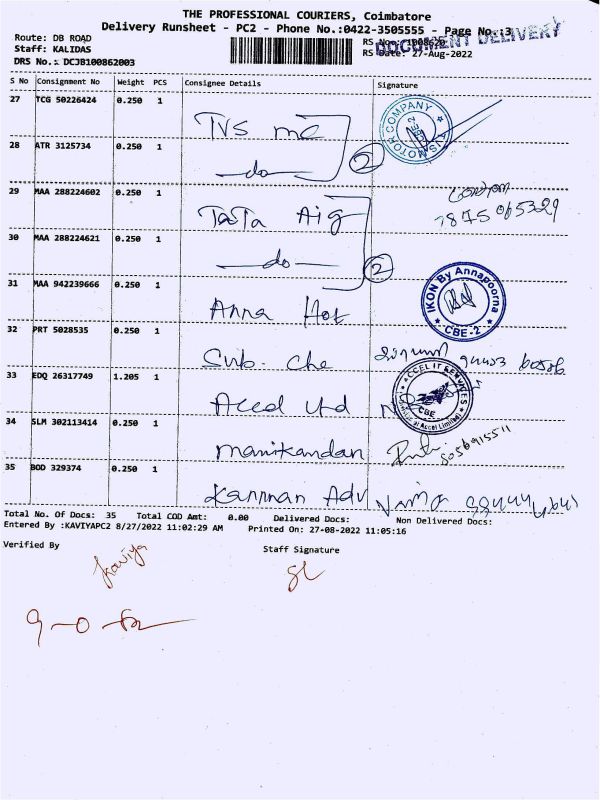 THE PROFESSIONAL COURIERS, Coimbatore
Delivery Runsheet - PC2 - Phone No.:0422-3505555 - Page No.:3
DOCUMENT DELIVERY
Route: DB ROAD
RS No.: 1008620
Staff: KALIDAS
RS Date: 27-Aug-2022
DRS No.: DCJB100862003
S No Consignment No Weight PCS Consignee Details Signature
27 TCG 50226424 0.250 1
TVS mo
MOTOR COMPANY
TVS
CBE-2
28 ATR 3125734 0.250 1
do
2
29 MAA 288224602 0.250 1
TaTa Aig
7875065329
30 MAA 288224621 0.250 1
do
2
31 MAA 942239666 0.250 1
Anna Hot
IKON By Annapoorna
CBE-2
32 PRT 5028535 0.250 1
Sub. Che
33 EDQ 26317749 1.205 1
Accel Ltd
ACCEL IT SERVICES
CBE
of Accel Limited
34 SLM 302113414 0.250 1
manikandan
8056915511
35 BOD 329374 0.250 1
Kannan Adv
Total No. Of Docs: 35 Total COD Amt: 0.00 Delivered Docs: Non Delivered Docs:
Entered By :KAVIYAPC2 8/27/2022 11:02:29 AM Printed On: 27-08-2022 11:05:16
Verified By
Staff Signature
Kaviya